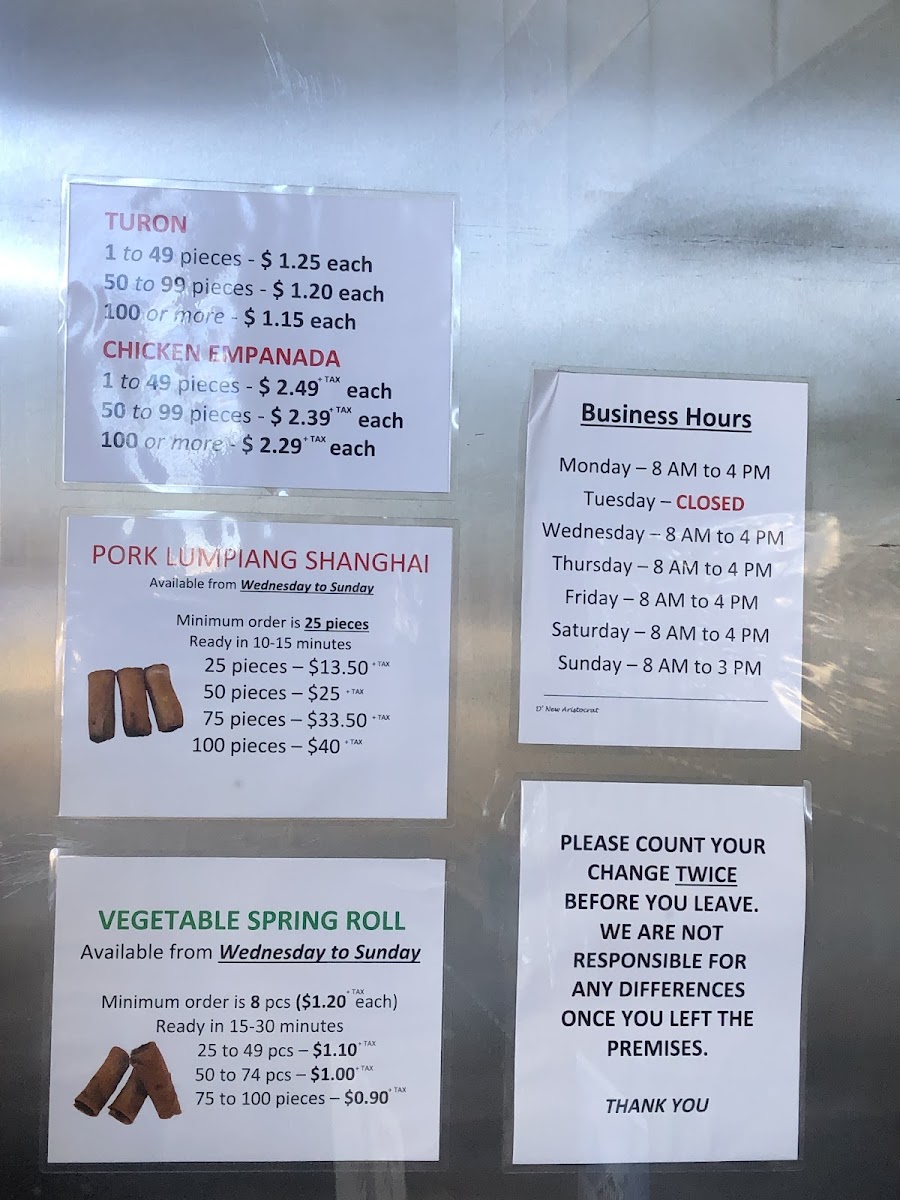 TURON
1 to 49 pieces - $ 1.25 each
50 to 99 pieces - $ 1.20 each
100 or more - $ 1.15 each
CHICKEN EMPANADA
1 to 49 pieces - $ 2.49 + TAX each
50 to 99 pieces - $ 2.39 + TAX each
100 or more - $ 2.29 + TAX each
PORK LUMPIANG SHANGHAI
Available from Wednesday to Sunday
Minimum order is 25 pieces
Ready in 10-15 minutes
25 pieces – $13.50 + TAX
50 pieces – $25 + TAX
75 pieces – $33.50 + TAX
100 pieces – $40 + TAX
VEGETABLE SPRING ROLL
Available from Wednesday to Sunday
Minimum order is 8 pcs ($1.20 + TAX each)
Ready in 15-30 minutes
25 to 49 pcs – $1.10 + TAX
50 to 74 pcs – $1.00 + TAX
75 to 100 pieces – $0.90 + TAX
Business Hours
Monday – 8 AM to 4 PM
Tuesday – CLOSED
Wednesday – 8 AM to 4 PM
Thursday – 8 AM to 4 PM
Friday – 8 AM to 4 PM
Saturday – 8 AM to 4 PM
Sunday – 8 AM to 3 PM
D' New Aristocrat
PLEASE COUNT YOUR
CHANGE TWICE
BEFORE YOU LEAVE.
WE ARE NOT
RESPONSIBLE FOR
ANY DIFFERENCES
ONCE YOU LEFT THE
PREMISES.
THANK YOU